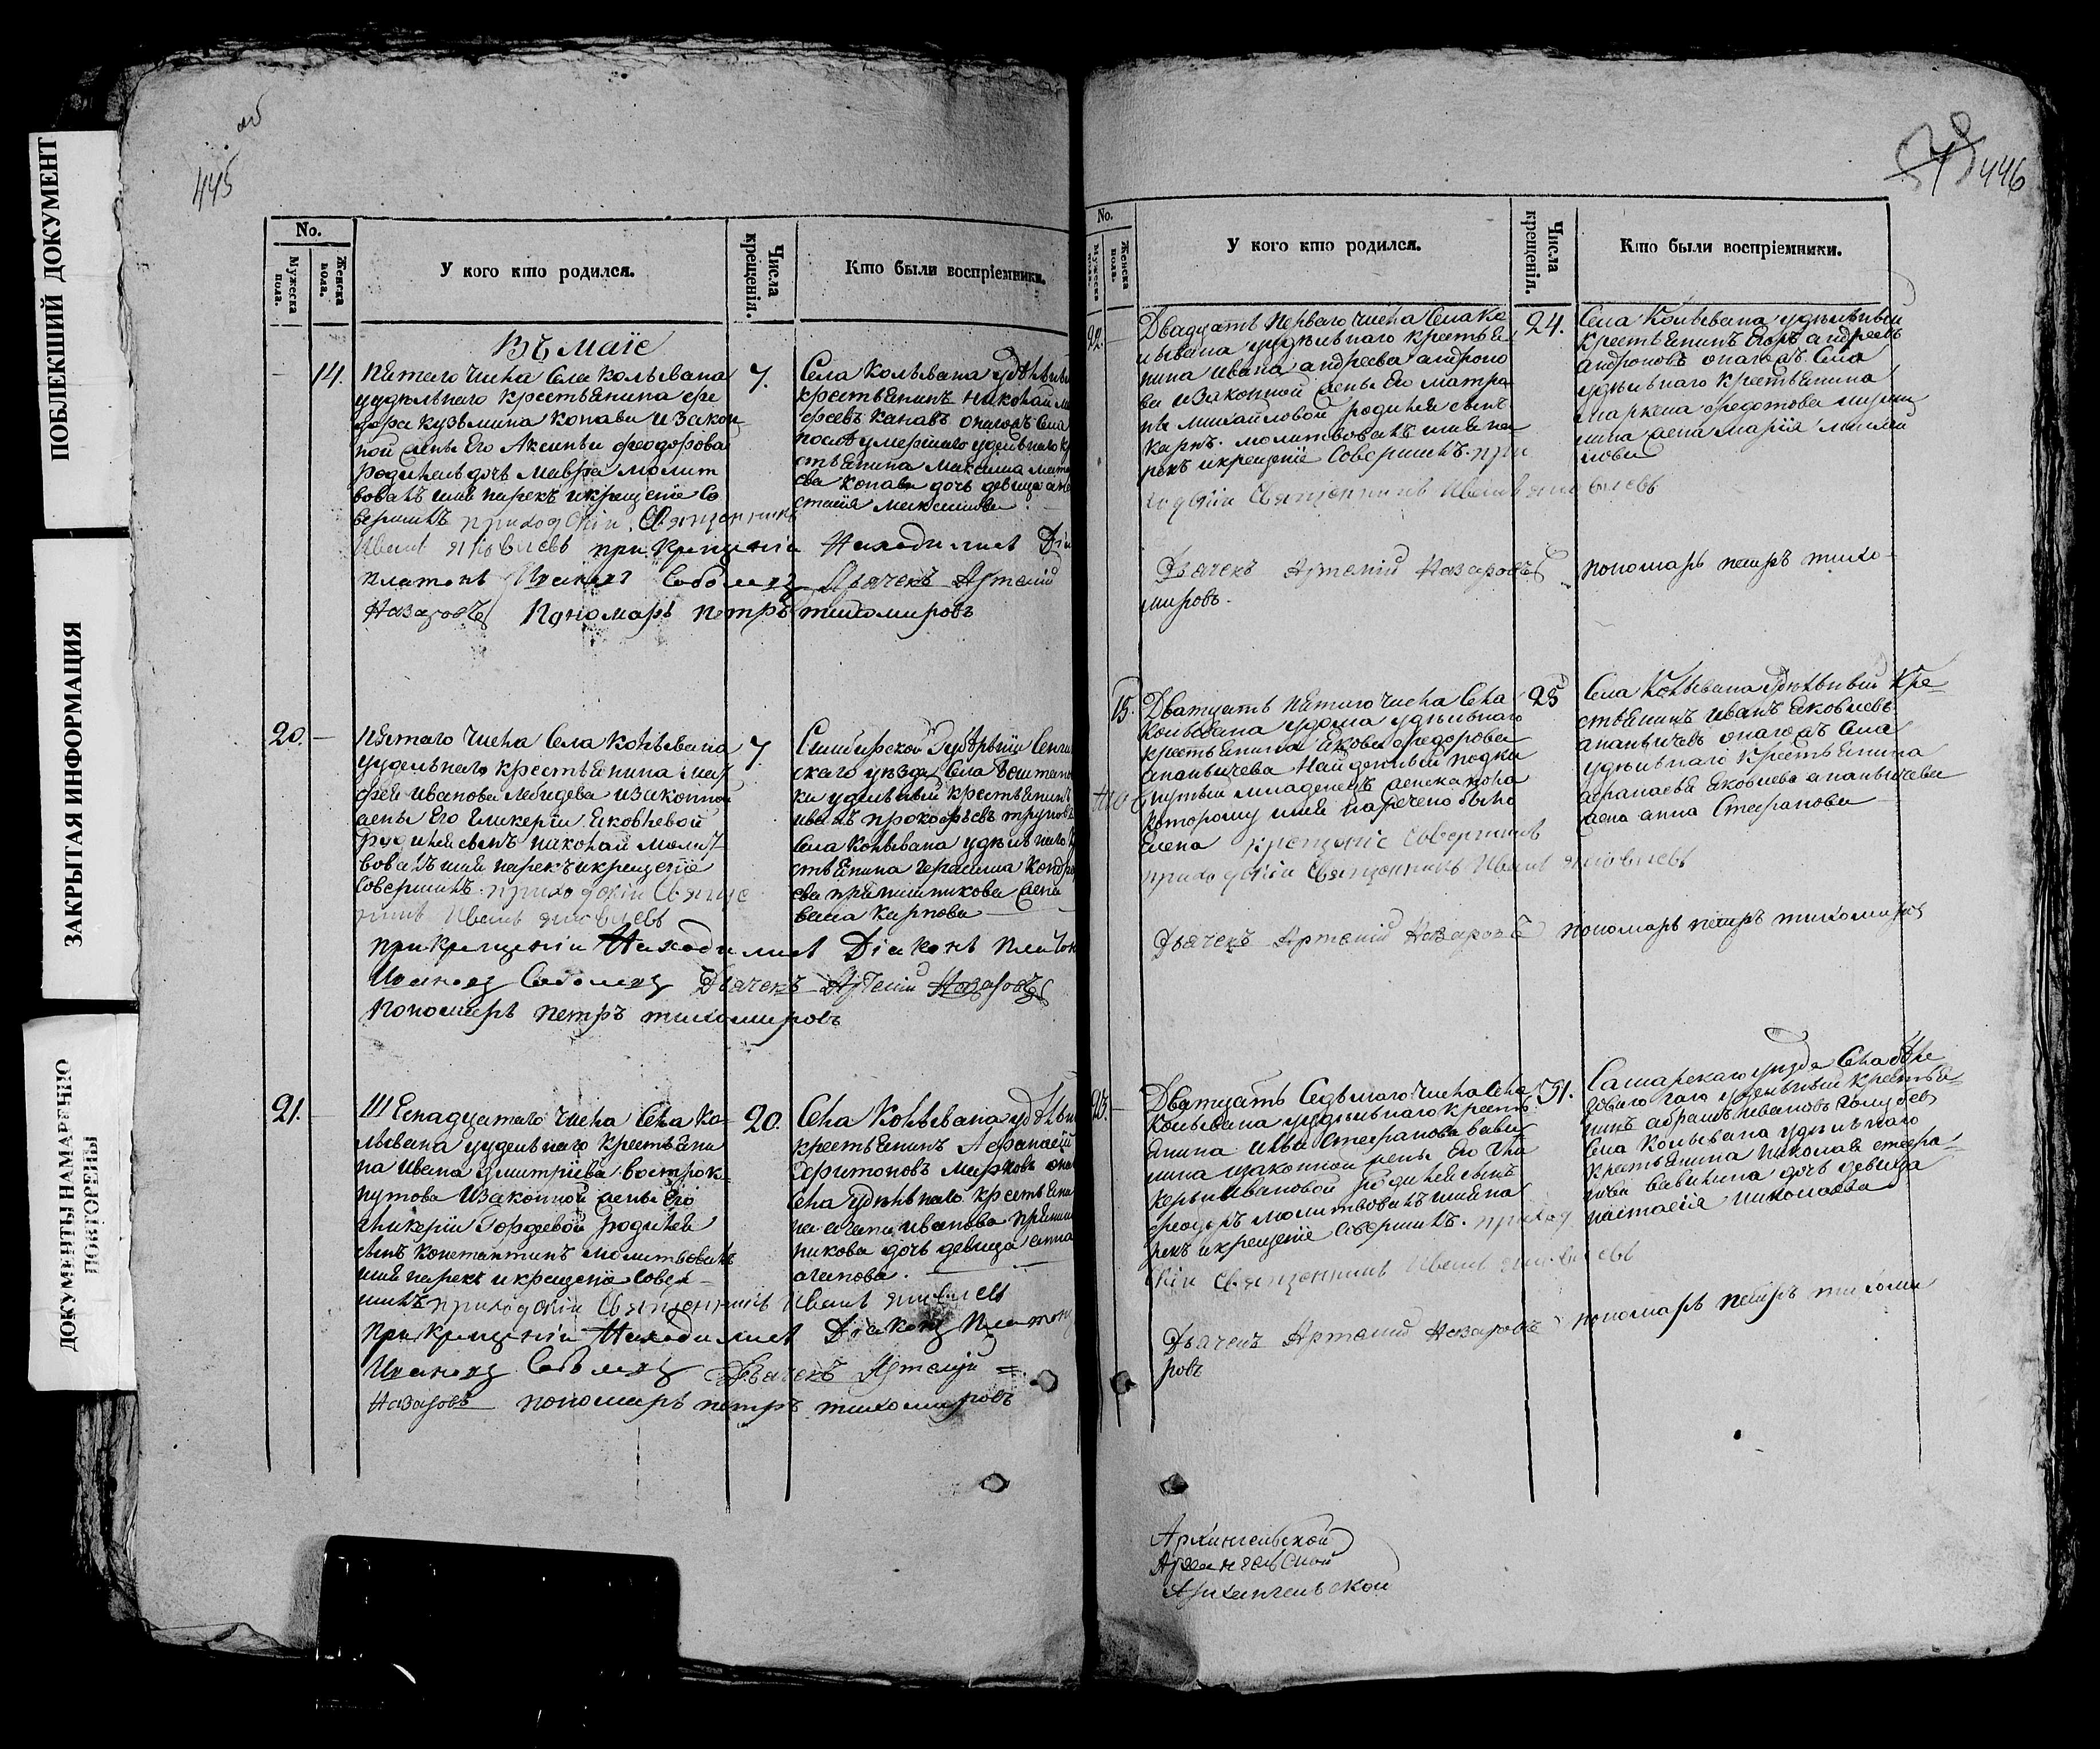 ПОБЛЕКШИЙ ДОКУМЕНТ
ЗАКРЫТАЯ ИНФОРМАЦИЯ
ДОКУМЕНТЫ НАМАРЕННО
ПОВТОРЕНЫ
об
445
No.
Мужеска пола.
Женска пола.
У кого кто родился.
Числа крещенія.
Кто были воспріемники.
Въ Маіе
14.
Пятаго числа Села Колывана
уудельнаго крестьянина Фе
дора Кузьмина Конава и закон
ной жены Его Аксиньи Феодорова
родилась дочь Мавра молит
вовалъ имя нарекъ и крещеніе Со
вершилъ приходскій Священникъ
Иванъ Яковлевъ при Крещеніи Находились
Платонъ Ивановъ Соболевъ Дьячекъ Артемій
Назаровъ Пономарь Петръ Тихомировъ
7.
Села Колывана удѣльны
крестьянинъ Николай
Канавъ онагожъ Села
послѣ умершаго удельнаго
стьянина Максима
Конава дочь девица
Максимова
20.
Пятаго числа Села Колывана
уудельнаго крестьянина
Иванова Лебидева и законной
жены Его Гликеріи Яковлевой
родился сынъ Николай молит
вовалъ имя нарекъ и крещеніе
Совершилъ приходскій Свяще
нникъ Иванъ Яковлевъ
при Крещеніи Находились Діаконъ Платон
Ивановъ Соболевъ Дьячекъ Артемій Назаровъ
Пономарь Петръ Тихомировъ
7.
Симбирской Губерніи
скаго уѣзда Села
ки удельный крестьянинъ
Иванъ Прокофьевъ Труновъ
Села Колывана удѣльнаго
стьянина Герасима
ева жена
Карпова
21.
Шеснадцатаго числа Села Ко
лывана уудельнаго крестьяни
на Ивана Дмитріева Вострок
нутова и законной жены Его
Гликеріи Гордеевой родился
сынъ Константинъ молитвовалъ
имя нарекъ и крещеніе Совер
шилъ приходскій Священникъ Иванъ Яковлевъ
при Крещеніи Находились Діаконъ Платонъ
Ивановъ Соболевъ Дьячекъ Артемій =
Назаровъ пономарь петръ тихомировъ
20.
Села Колывана удѣльн
крестьянинъ Афанасій
Харитоновъ Марковъ
Села удѣльнаго крестьяни
на Агапа Иванова
никова дочь девица Анна
Агапова.
446
No.
Мужеска пола.
Женска пола.
У кого кто родился.
Числа крещенія.
Кто были воспріемники.
22.
Двадцать перваго числа Села Ко
лывана уудѣльнаго крестья
нина Ивана Андреева Андроно
ва и законной жены Его Матро
ны Михайловой родился сынъ
Карпъ. молитвовалъ имя на
рекъ и крещеніе Совершилъ. при
ходскій Священникъ Иванъ Яковлевъ
Дьячекъ Артемій Назаровъ пономарь петръ тихо
мировъ.
24.
Села Колывана удѣльный
крестьянинъ Егоръ Андреевъ
Андроновъ онагожъ Села
удѣльнаго крестьянина
Маркела Федотова
нина жена Марія Михай
лова
15.
Дватцать пятаго числа Села
Колывана у дома удѣльнаго
крестьянина Якова Федорова
Ананьичева Найденный подки
нутый младенецъ женска пола
которому имя наречено было
Елена крещеніе Совершилъ
приходскій Священникъ Иванъ Яковлевъ
Дьячекъ Артемій Назаровъ пономарь петръ тихомировъ
25
Села Колывана Удѣльный кре
стьянинъ Иванъ Яковлевъ
Ананьичевъ онагожъ Села
удѣльнаго крестьянина
Афанасья Яковлева Ананьичева
жена Анна Стефанова
23.
Дватцать Седьмаго числа Села
Колывана уудѣльнаго кресть
янина Ильи Стефанова Вави
лина и законной жены Его Гли
керьи Ивановой родился сынъ
Феодоръ молитвовалъ имя на
рекъ и крещеніе Совершилъ. приход
скій Священникъ Иванъ Яковлевъ
Дьячекъ Артемій Назаровъ пономарь петръ тихоми
ровъ
31.
Самарскаго уезда Села
удельный крестья
нинъ Абрамъ Ивановъ Голубевъ
Села Колывана удѣльнаго
крестьянина Николая Стефа
нова Вавилина дочь девица
Настасія Николаева
Архангельской
Архангельской
Архангельской